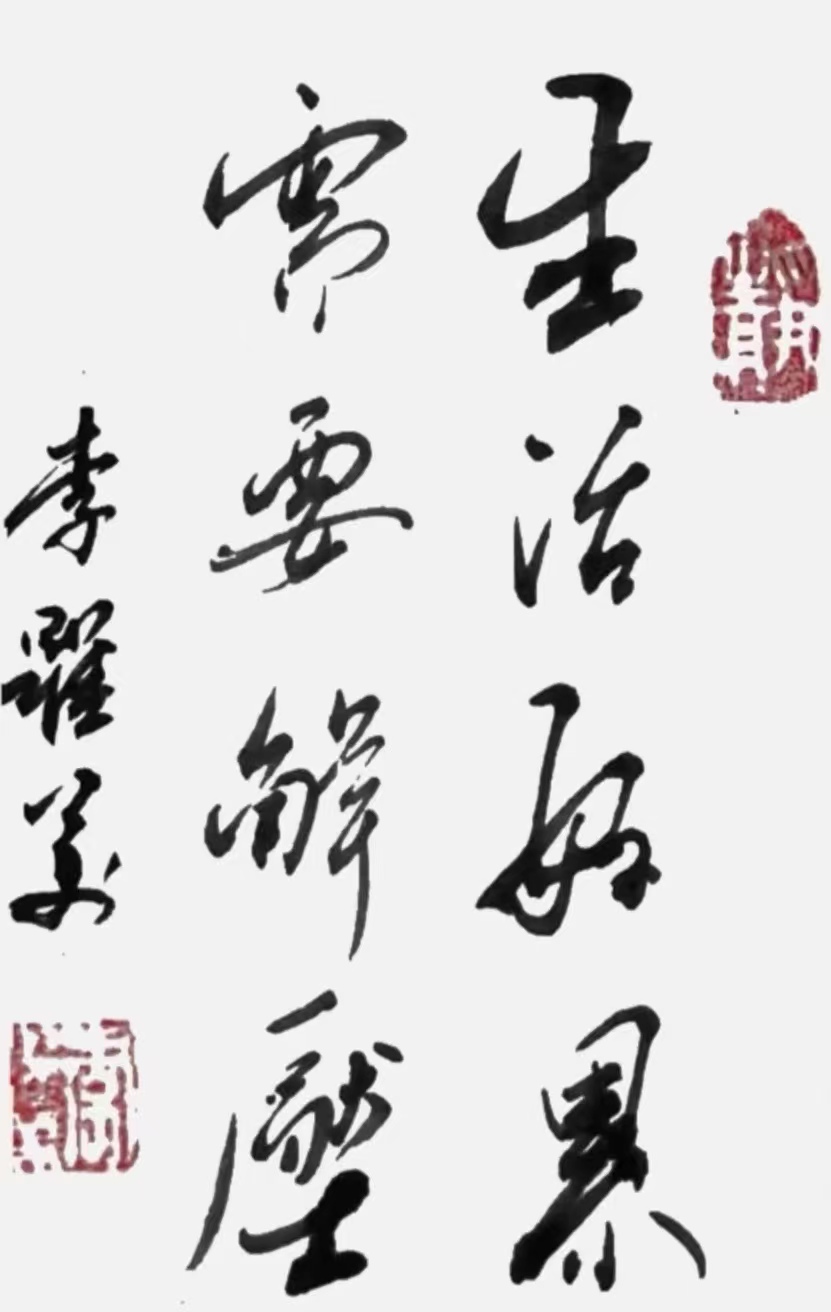 生活好累
需要解壓
李羅義